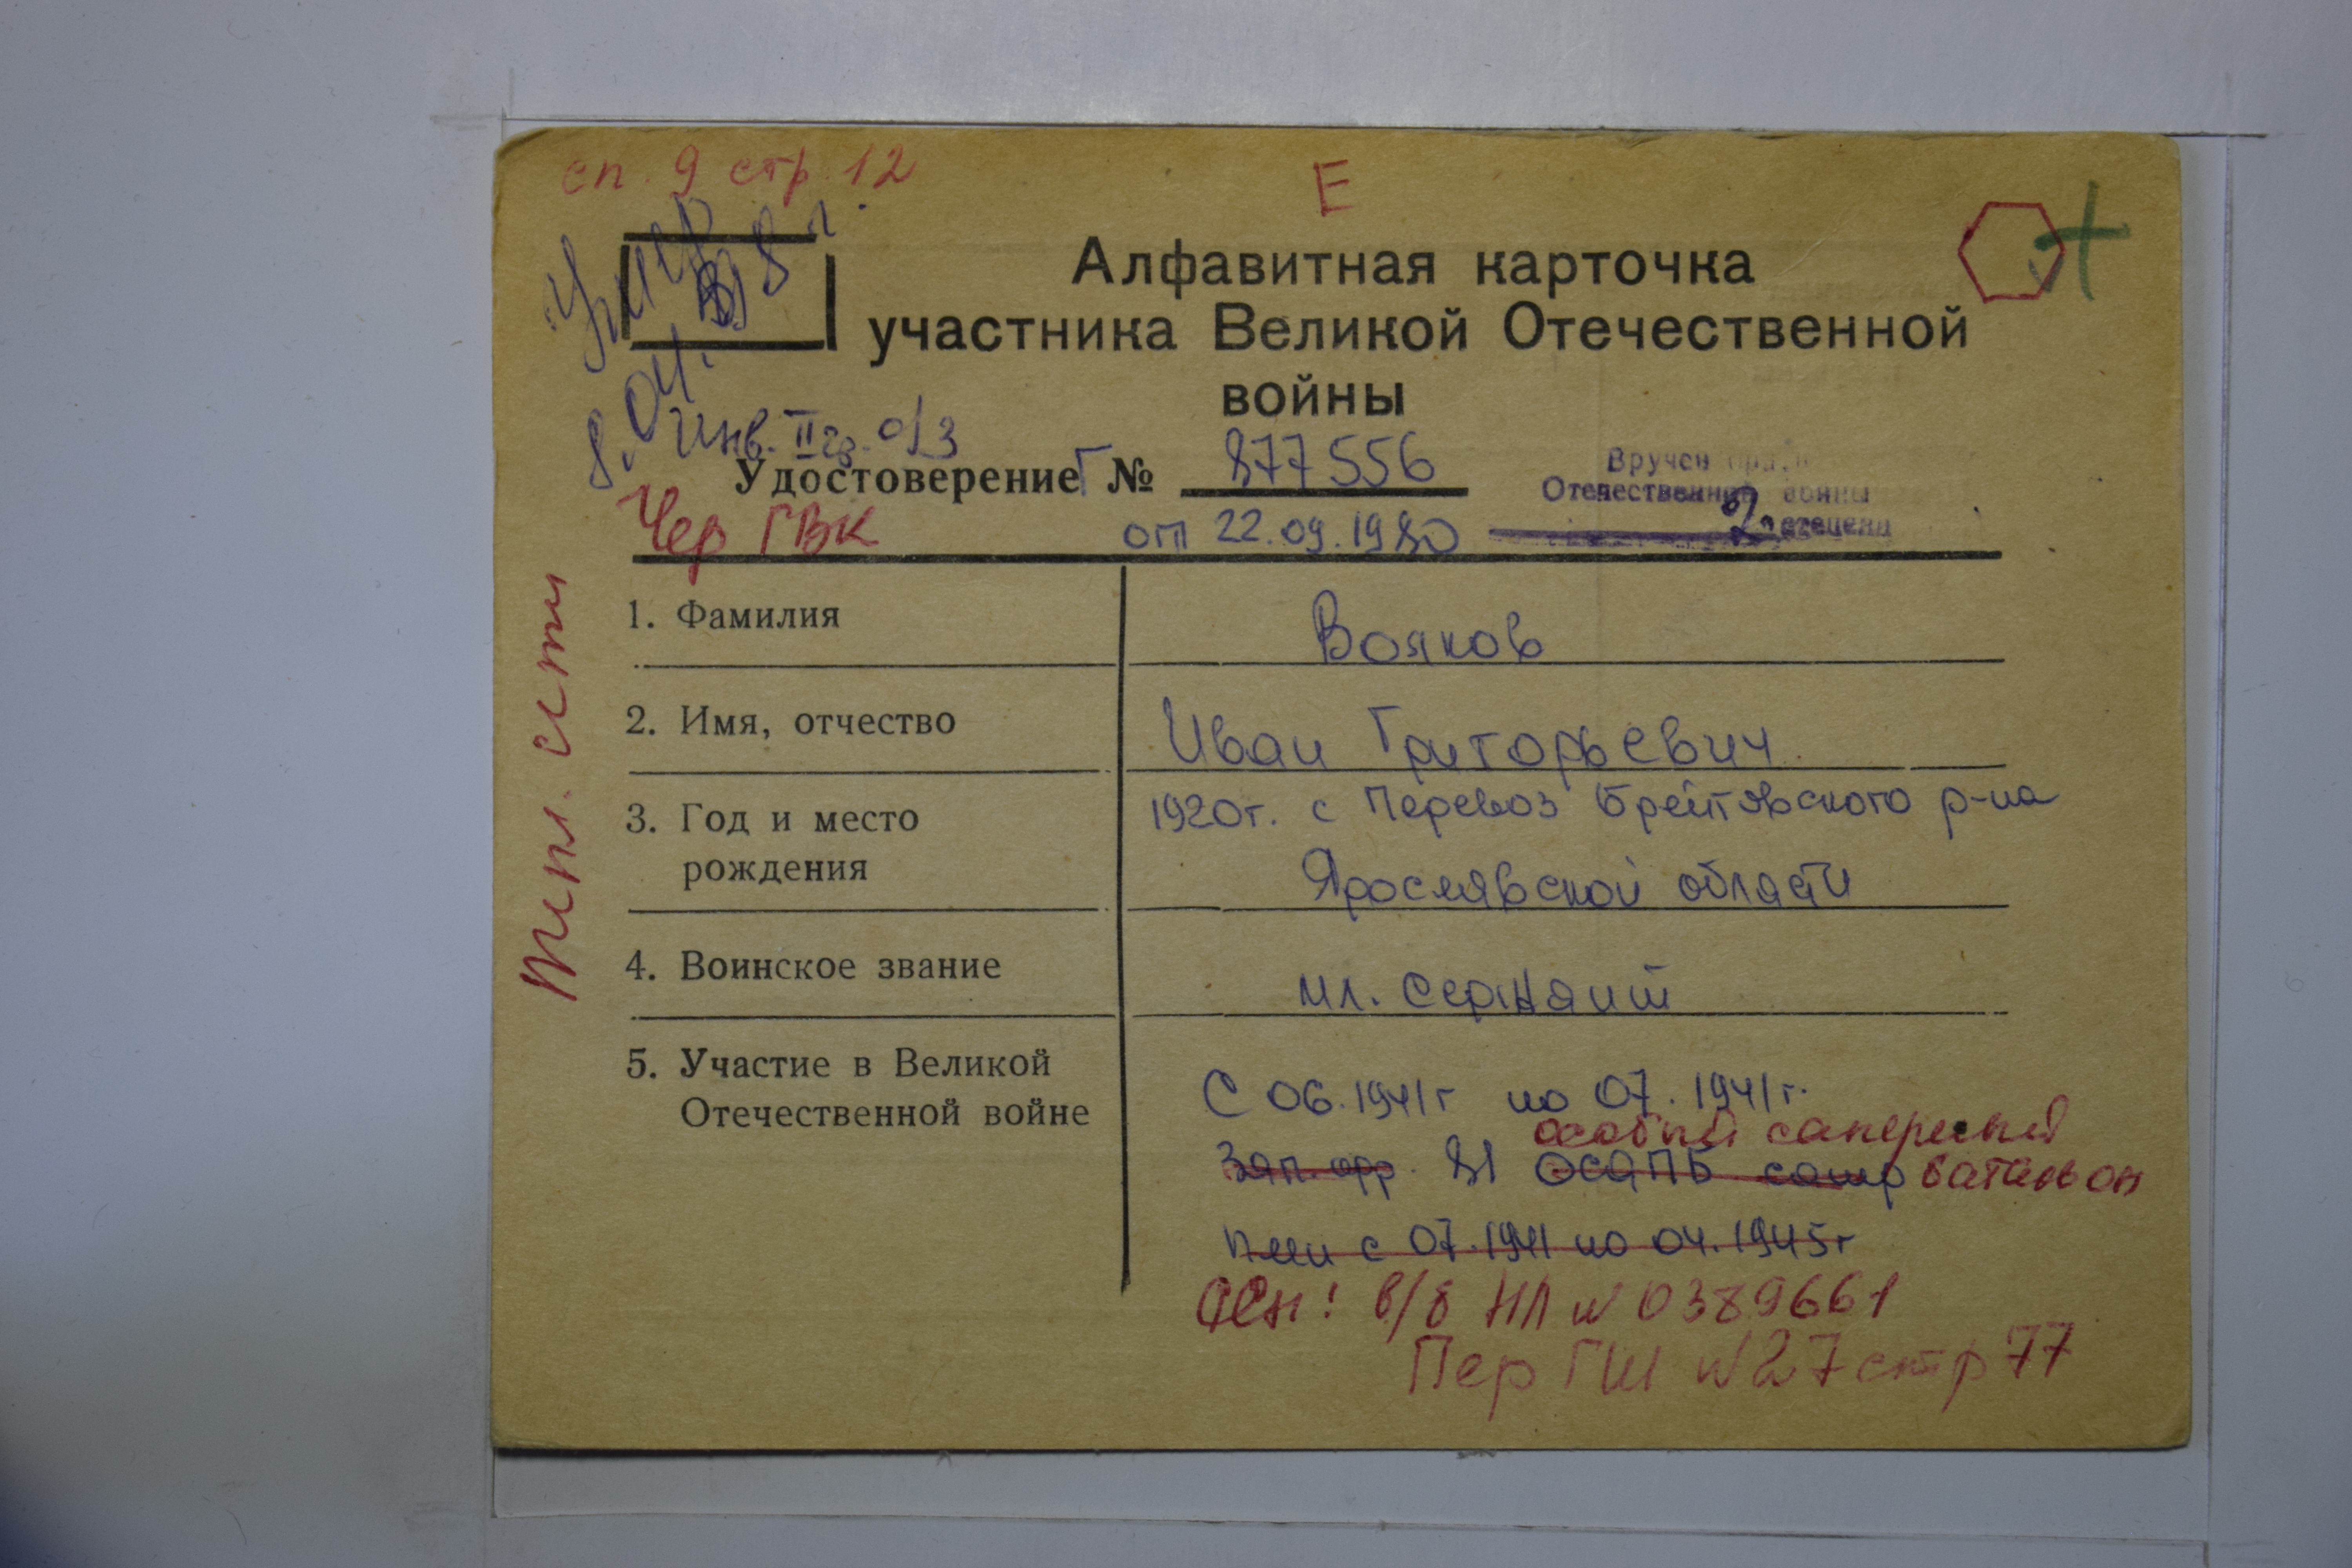 сп. 9 стр. 12
Е
Умер
8.04.
Алфавитная карточка
участника Великой Отечественной
войны
Инв. II гр. о/з
Удостоверение Г № 877556
Вручен
Отечественной войны
2 степени
Чер ГВК
от 22.09.1980
1. Фамилия Вояков
2. Имя, отчество Иван Григорьевич
3. Год и место 1920г. с Перевоз Брейтовского р-на
рождения Ярославской области
4. Воинское звание мл. сержант
5. Участие в Великой
Отечественной войне
С 06.1941г по 07.1941г.
особый саперный
Зап. 81 ОСАПБ сапер батальон
с 07.1941 по 04.1945г
Осн: в/б НЛ № 0389661
Пер ГШ № 27 стр 77